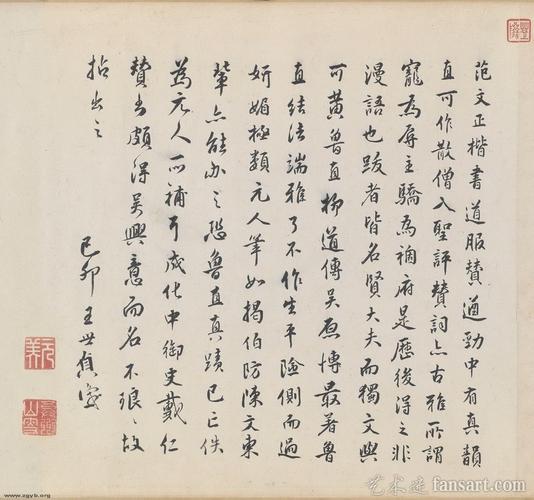 范文正楷書道服贊遒勁中有真韻
直可作散僧入聖評贊詞亦古雅所謂
寵為辱主驕為禍府是歷後得之非
漫語也跋者皆名賢大夫而獨文與
可黃魯直柳道傳吳原博最著魯
直結法端雅了不作生平險側而過
妍媚極類元人筆如揭伯防陳文東
輩亦能辦之恐魯直真蹟已亡佚
為元人所補耳成化中御史戴仁
贊書頗得吳興意而名不琅琅故
拈出之
己卯王世貞識
元美
www.zgyb.org
fansart.com